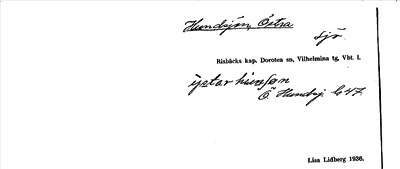 Hundsjön, Östra
sjö
Risbäcks kap. Dorotea sn, Vilhelmina tg, Vbt. l.
Ö Hundsj. 647
Lisa Lidberg 1936.